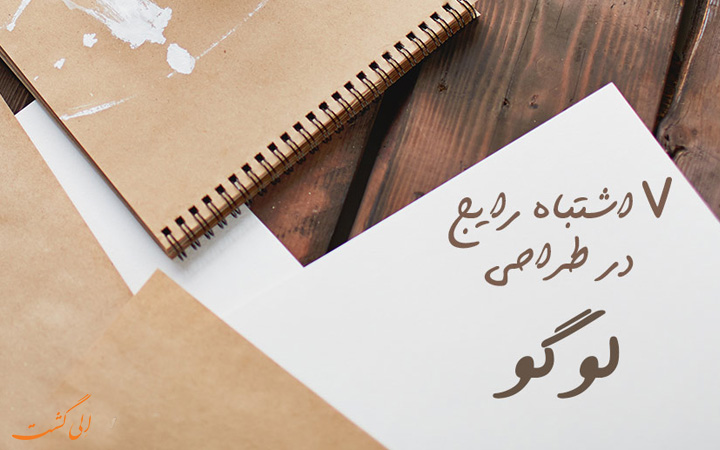 ۷ اشتباه رایج
در طراحی
لوگو
الی گشت